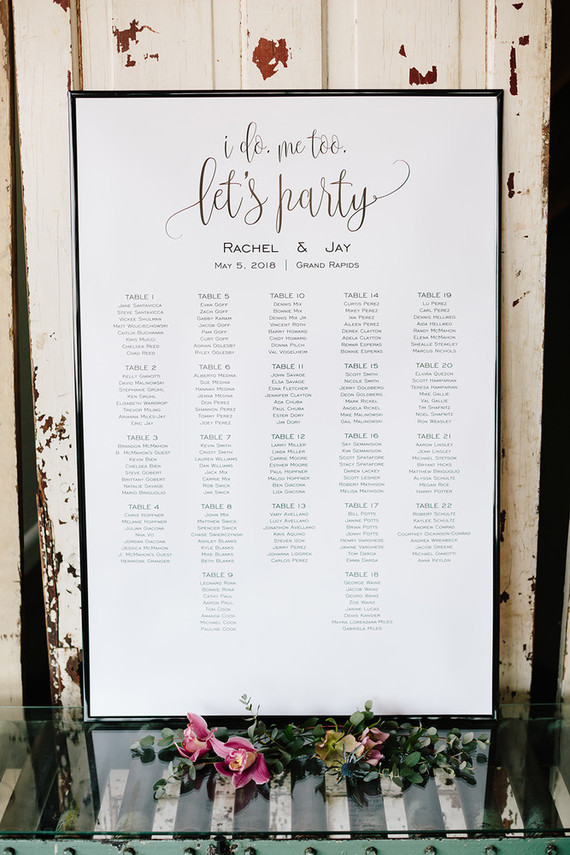 i do. me too.
let's party
Rachel & Jay
May 5, 2018 | Grand Rapids
Table 1
Jane Santavicca
Steve Santavicca
Vickee Shulman
Matt Wojciechowski
Caitlin Buchanan
Kris Mucci
Chelsea Reed
Chad Reed
Table 2
Kelly Giamotti
David Malinowski
Stephanie Gruhl
Ken Gruhl
Elizabeth Wardrop
Trevor Miling
Ariana Miles-Jay
Eric Jay
Table 3
Brandon McMahon
B. McMahon's Guest
Kevin Bien
Chelsea Bien
Steve Gobert
Brittany Gobert
Natalie Song
Mario Brisuglio
Table 4
Chris Hoffner
Melanie Hoffner
Julian Giacona
Nha Vo
Jordan Giacona
Jessica McMahon
J. McMahon's Guest
Hermione Granger
Table 5
Evan Goff
Zach Goff
Gabby Karam
Jacob Goff
Pam Goff
Curt Goff
Adrian Oglesby
Riley Oglesby
Table 6
Alberto Medina
Sue Medina
Hannah Medina
Jenna Medina
Don Perez
Shannon Perez
Tommy Perez
Joey Perez
Table 7
Kevin Smith
Cristy Smith
Lauren Williams
Dan Williams
Jack Mix
Carrie Mix
Rob Swick
Jan Swick
Table 8
John Mix
Matthew Swick
Spencer Swick
Chase Skierczynski
Ashley Blanks
Kyle Blanks
Mike Blanks
Beth Blanks
Table 9
Leonard Rona
Bonnie Rona
Cathy Paul
Aaron Paul
Tom Cook
Amanda Cook
Michael Cook
Pauline Cook
Table 10
Dennis Mix
Bonnie Mix
Dennis Mix Jr
Vincent Roth
Barry Howard
Cindy Howard
Donna Pilch
Val Vogelheim
Table 11
John Silva
Elsa Savage
Edna Fletcher
Jennifer Clayton
Ada Chuba
Paul Chuba
Ester Dory
Jim Dory
Table 12
Larry Miller
Linda Miller
Carrie Moore
Esther Moore
Paul Moore
Malou Hall
Ben Giacona
Lisa Giacona
Table 13
Vary Avellano
Lucy Avellano
Jonathon Avellano
Kris Aquino
Steven Izok
Jerry Perez
Johanna Lodgren
Carlos Perez
Table 14
Curtis Perez
Mikey Perez
Ian Perez
Aileen Perez
Derek Clayton
Adela Clayton
Remar Esperas
Bonnie Esperas
Table 15
Scott Smith
Nicole Smith
Jerry Goldberg
Deon Goldberg
Mark Rickel
Angela Rickel
Mike Malinowski
Gail Malinowski
Table 16
Say Semansion
Kim Semansion
Scott Spatafore
Staci Spatafore
Derek Lackey
Scott Lesher
Robert Mathison
Melisa Mathison
Table 17
Bill Potts
Janine Potts
Brian Potts
Jonny Potts
Henry Varghese
Janine Varghese
Tom Garda
Emma Garda
Table 18
George Wainz
Jacob Wainz
Georg Wainz
Zoe Wainz
Janine Lucas
Denis Kander
Mayra Lorenzana Miles
Gabriela Miles
Table 19
Lu Perez
Carl Perez
Dennis Hellared
Aida Hellared
Randy McMahon
Elena McMahon
Shealle Stekley
Marcus Nichols
Table 20
Elvira Quezon
Scott Hamparian
Teresa Hamparian
Mike Gallie
Val Gallie
Tim Shafnitz
Noel Shafnitz
Ron Weasley
Table 21
Aaron Linsley
Jenn Linsley
Michael Stetson
Bryant Hicks
Matthew Brisuglio
Alyssa Schultz
Megan Rice
Harry Potter
Table 22
Robert Schultz
Kaylee Schultz
Andrew Conrad
Courtney Dickinson-Conrad
Andrea Wrenbeck
Jacob Greene
Michael Giamotti
Anna Keylon